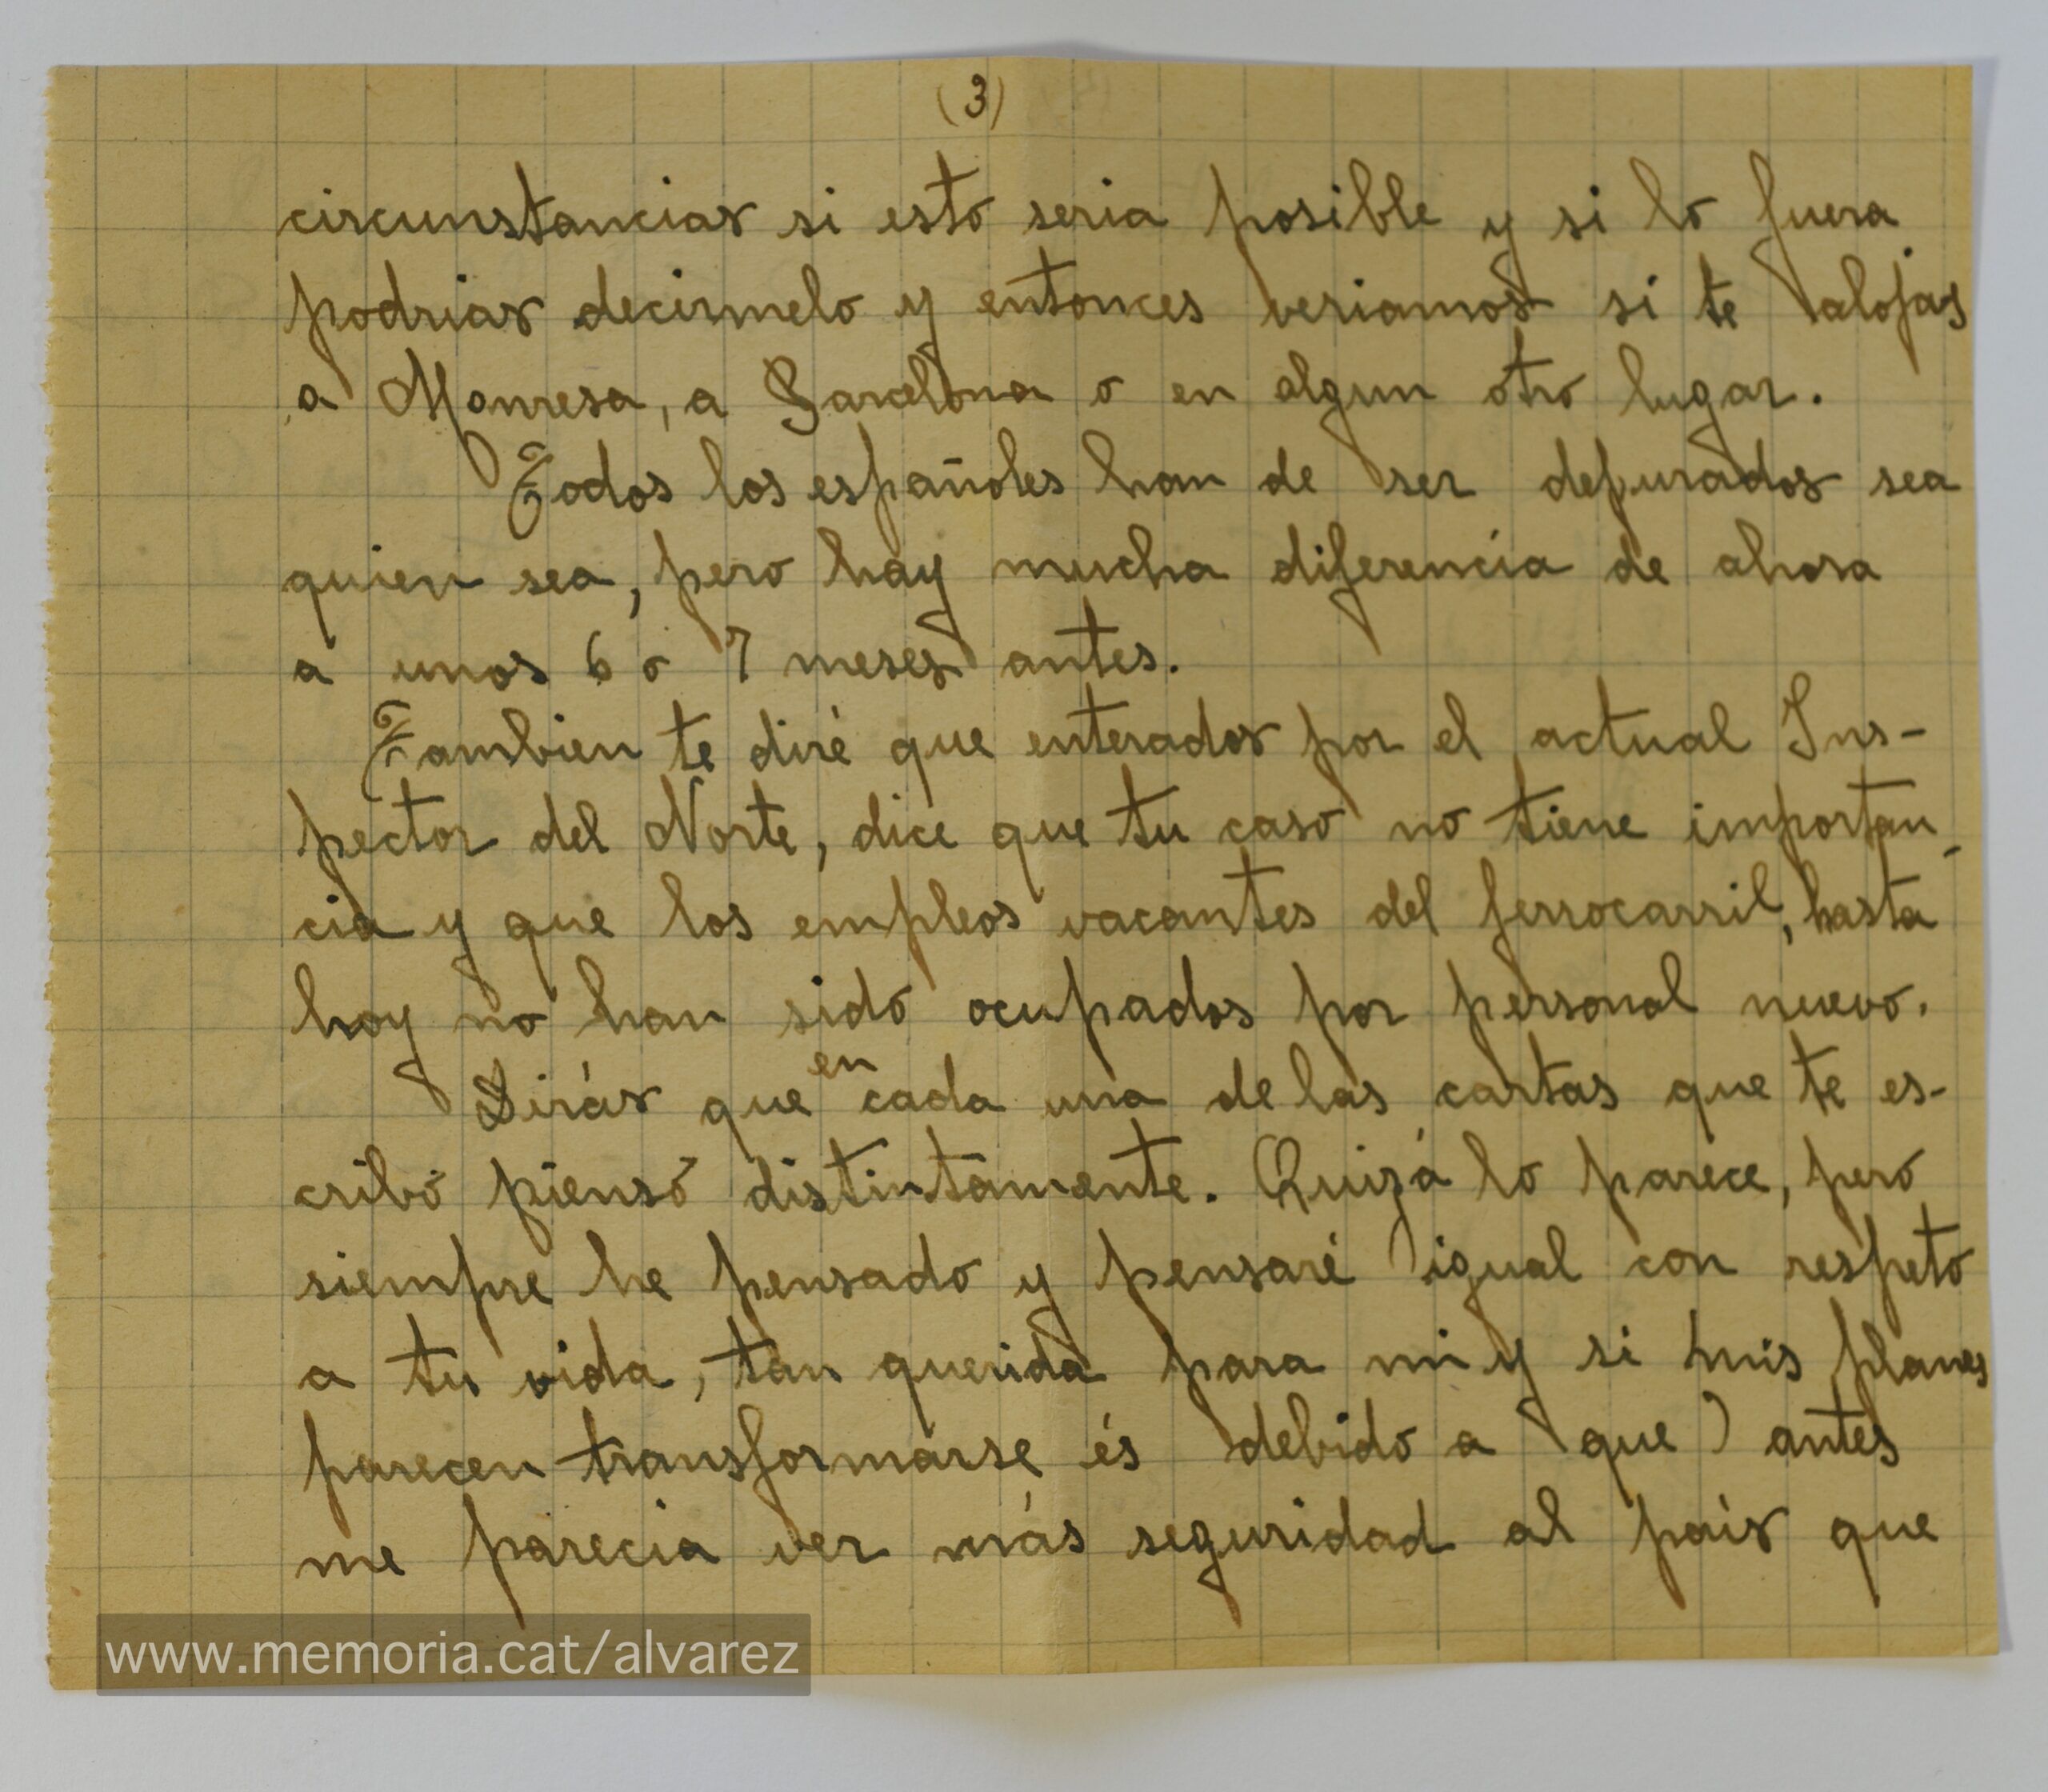 (3)
circunstancias si esto seria posible y si lo fuera
podrias decirmelo y entonces veriamos si te alojas
a Manresa, a Barcelona o en algun otro lugar.
Todos los españoles han de ser depurados sea
quien sea, pero hay mucha diferencia de ahora
a unos 6 o 7 meses antes.
Tambien te diré que enterados por el actual Ins-
pector del Norte, dice que tu caso no tiene importan-
cia y que los empleos vacantes del ferrocarril, hasta
hoy no han sido ocupados por personal nuevo.
Dirás que en cada una de las cartas que te es-
cribo pienso distintamente. Quizá lo parece, pero
siempre he pensado y pensaré igual con respeto
a tu vida, tan querida para mi y si mis planes
parecen transformarse és debido a que antes
me parecia ver más seguridad al país que
www.memoria.cat/alvarez